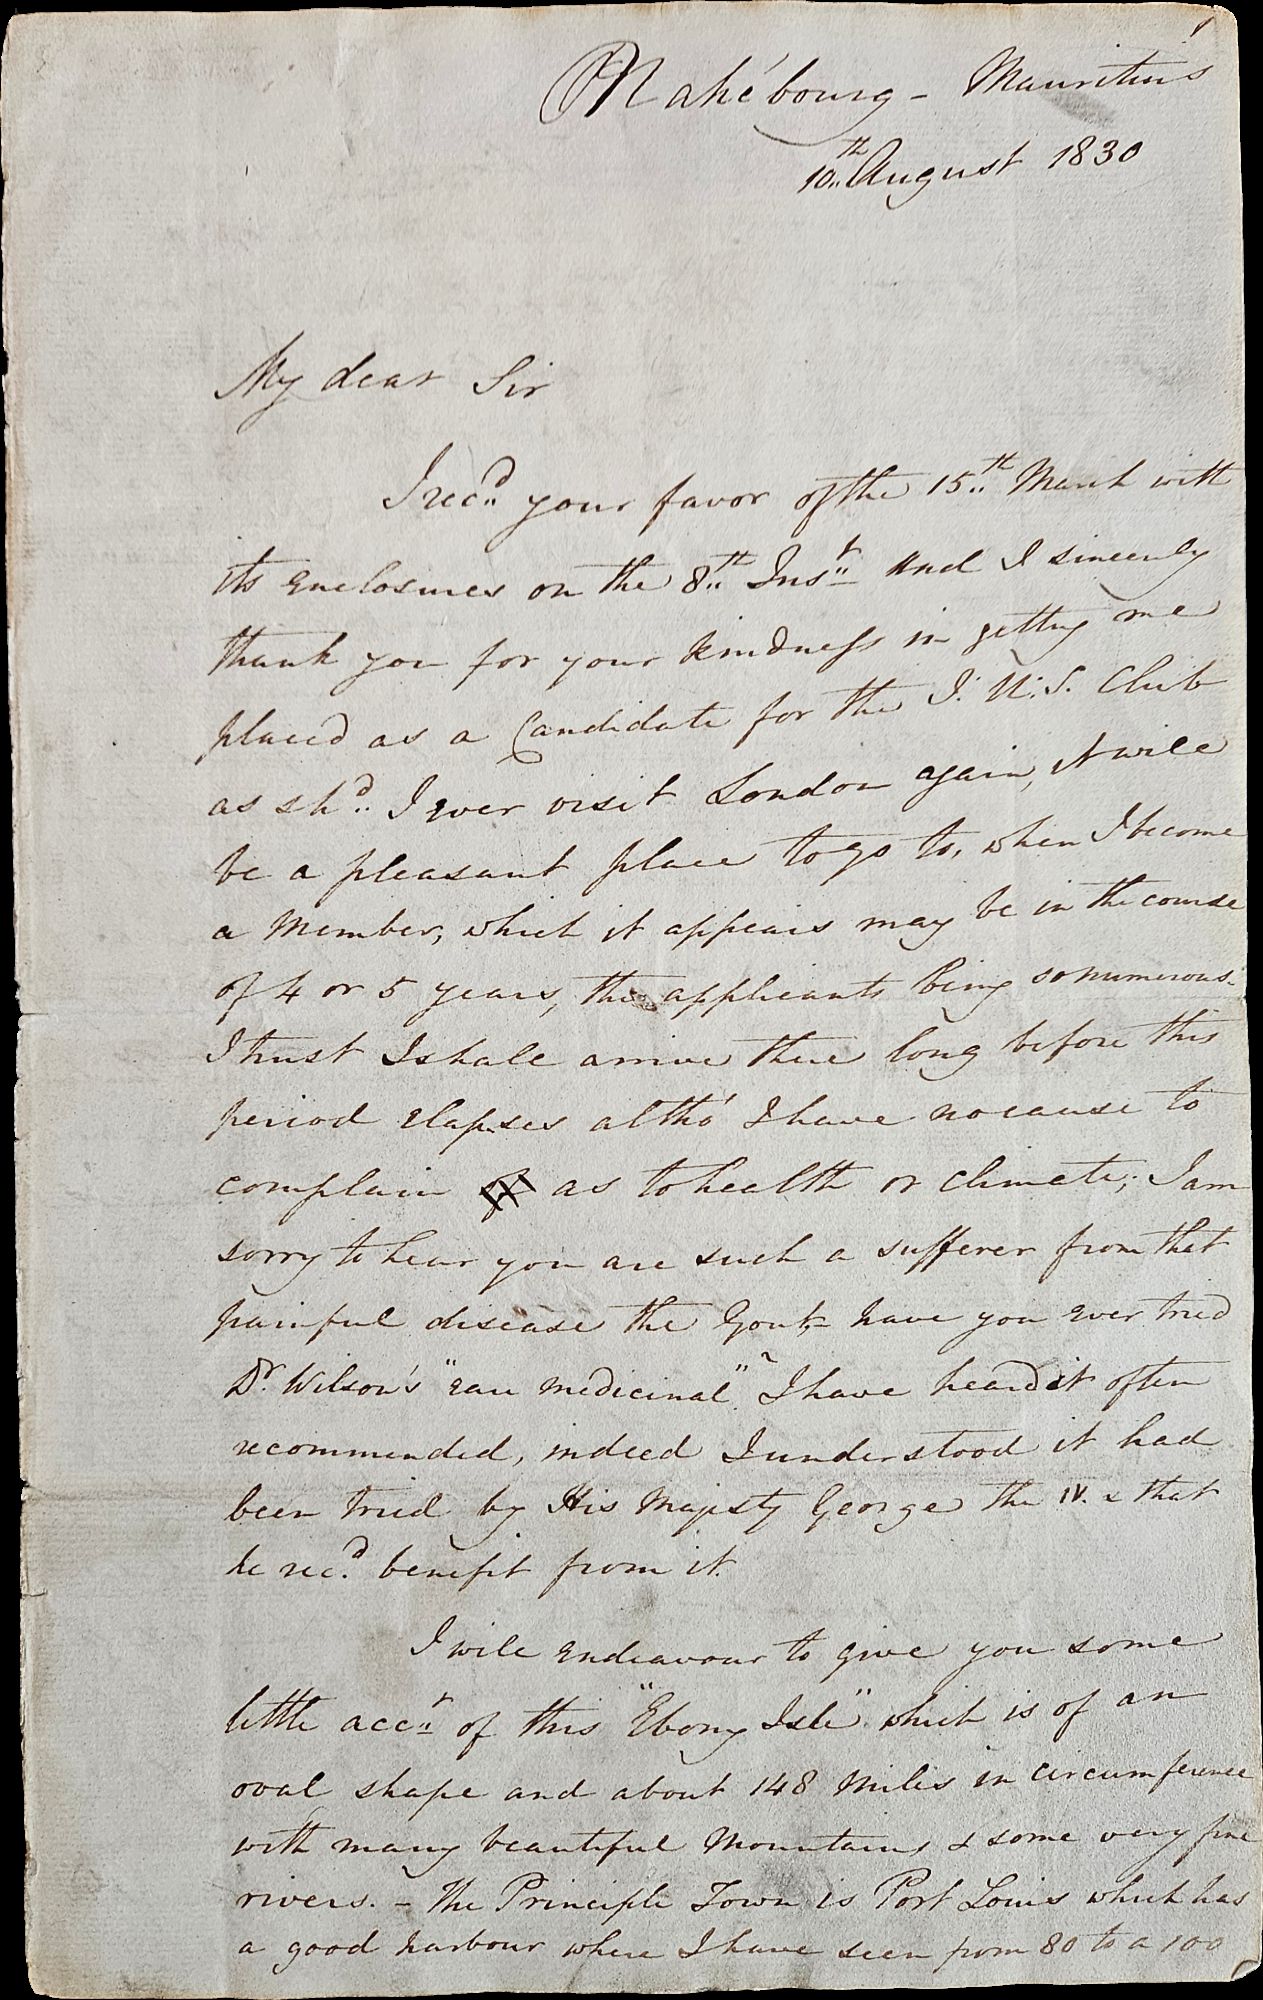 Mahébourg - Mauritius
10th August 1830
My dear Sir
I recd your favor of the 15th March with
its enclosures on the 8th Inst and I sincerely
thank you for your kindness in getting me
placed as a Candidate for the J. U. S. Club
as shd I ever visit London again, it will
be a pleasant place to go to, when I become
a Member, which it appears may be in the course
of 4 or 5 years, the applicants being so numerous.
I trust I shall arrive there long before this
period elapses altho' I have no cause to
complain as to health or climate; I am
sorry to hear you are such a sufferer from that
painful disease the Gout - have you ever tried
Dr Wilson's "eau medicinal"? I have heard it often
recommended, indeed I understood it had
been tried by His Majesty George the IV. & that
he recd benefit from it.
I will endeavour to give you some
little acct of this "Ebony Isle" which is of an
oval shape and about 148 Miles in circumference
with many beautiful Mountains & some very fine
rivers. - The Principle Town is Port Louis which has
a good harbour where I have seen from 80 to a 100